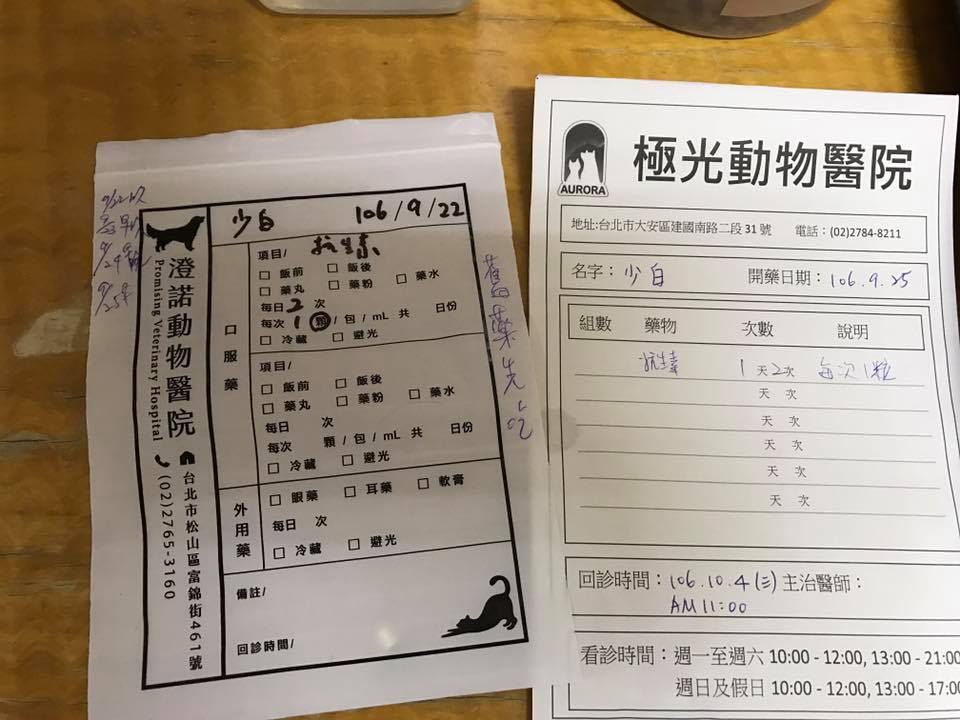 少白 106/9/22
項目/ 抗生素
口服藥
□ 飯前 □ 飯後
□ 藥丸 □ 藥粉 □ 藥水
每日 2 次
每次 1 顆/包/mL 共 日份
□ 冷藏 □ 避光
項目/
□ 飯前 □ 飯後
□ 藥丸 □ 藥粉 □ 藥水
每日 次
每次 顆/包/mL 共 日份
□ 冷藏 □ 避光
外用藥
□ 眼藥 □ 耳藥 □ 軟膏
每日 次
□ 冷藏 □ 避光
備註/
回診時間/
澄諾動物醫院
Promising Veterinary Hospital
台北市松山區富錦街461號
(02)2765-3160
舊藥先吃
AURORA
極光動物醫院
地址:台北市大安區建國南路二段 31 號 電話:(02)2784-8211
名字:少白 開藥日期:106.9.25
組數 藥物 次數 說明
抗生素 1天2次 每次1粒
天 次
天 次
天 次
天 次
天 次
回診時間:106.10.4(三) 主治醫師:
AM11:00
看診時間:週一至週六 10:00 - 12:00, 13:00 - 21:00
週日及假日 10:00 - 12:00, 13:00 - 17:00